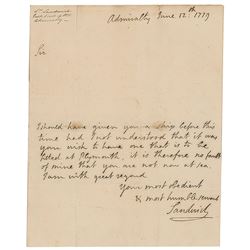 Ld Sandwich
Admiralty
Admiralty June 12th 1779
Sir
I should have given you a Ship before this
time had I not understood that it was
your wish to have one that is to be
fitted at Plymouth, it is therefore no fault
of mine that you are not now at sea
I am with great regard
Your most obedient
& most humble servant
Sandwich